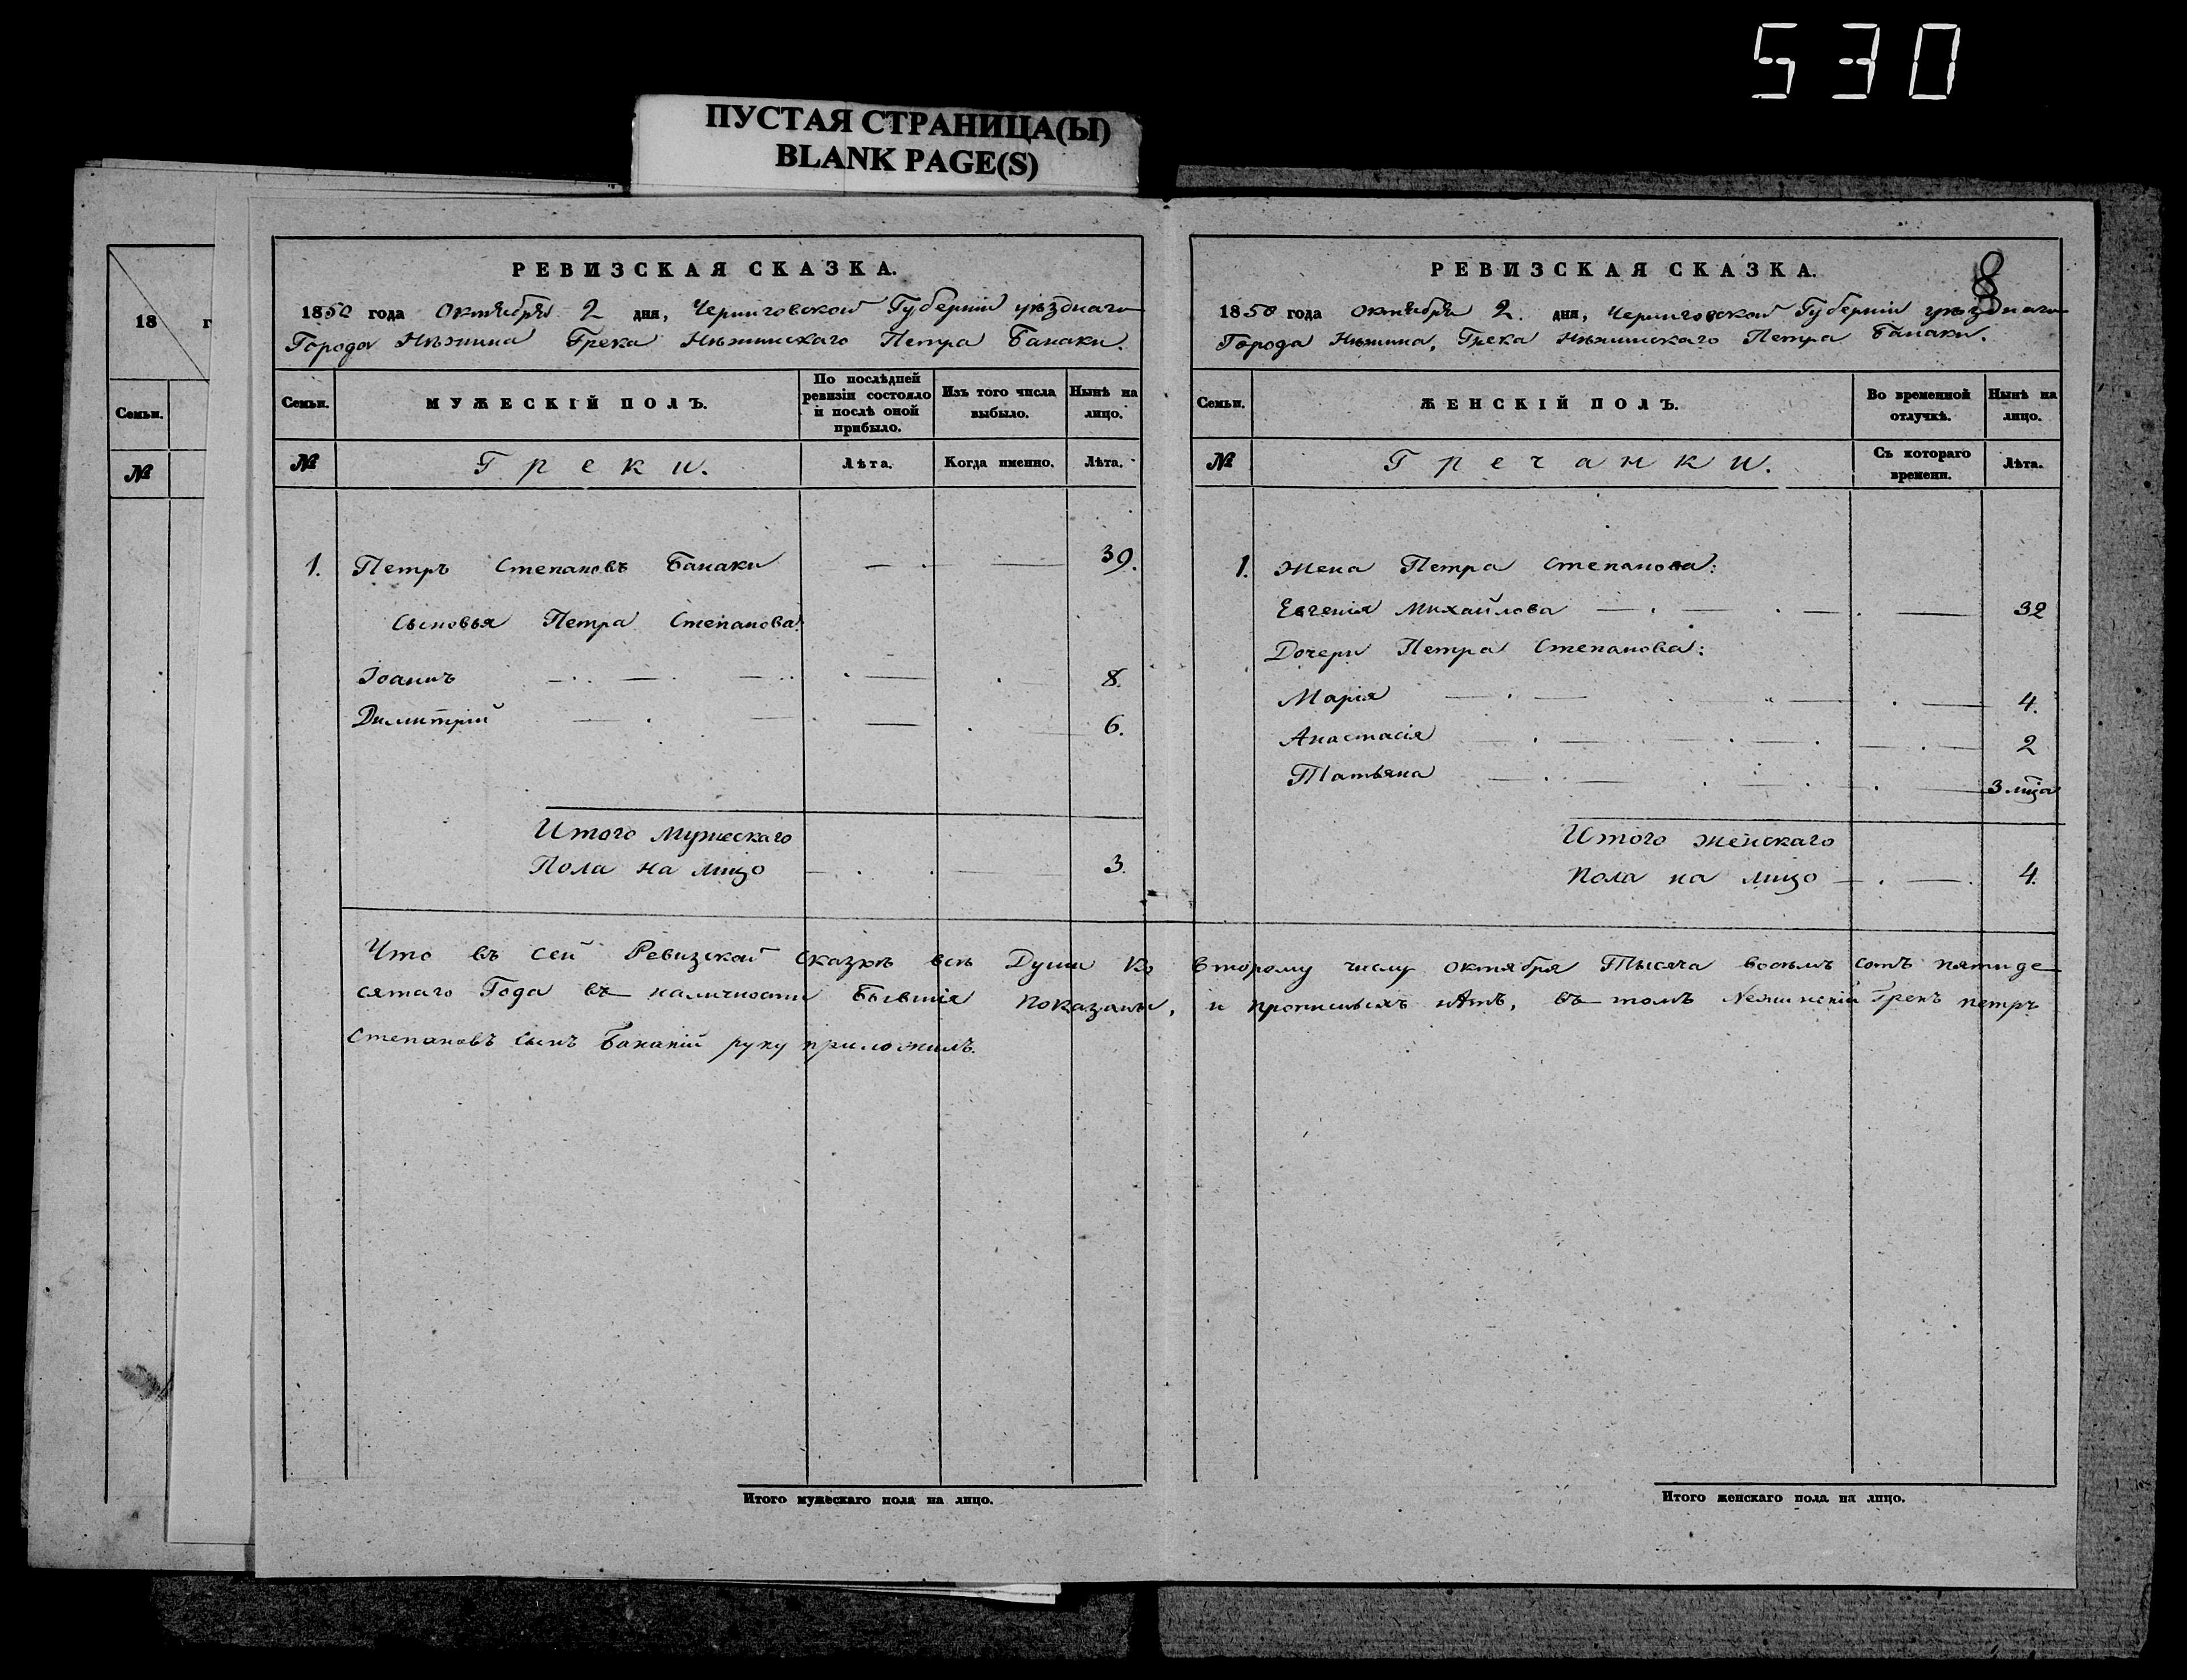 530
ПУСТАЯ СТРАНИЦА(Ы)
BLANK PAGE(S)
18 г
Семьи.
№
РЕВИЗСКАЯ СКАЗКА.
1850 года Октября 2 дня, Черниговской Губерніи уѣзднаго
Города Нѣжина Грека Нѣжинскаго Петра Банаки.
Семьи.
МУЖЕСКІЙ ПОЛЪ.
По послѣдней ревизіи состояло и послѣ оной прибыло.
Изъ того числа выбыло.
Нынѣ на лицо.
№
Греки.
Лѣта.
Когда именно.
Лѣта.
1. Петръ Степановъ Банаки 39.
Сыновья Петра Степанова:
Іоаннъ 8.
Димитрій 6.
Итого мужескаго
Пола на лицо 3.
Итого мужескаго пола на лицо.
8
РЕВИЗСКАЯ СКАЗКА.
1850 года октября 2. дня, Черниговской Губерніи уѣзднаго
Города Нѣжина, Грека Нѣжинскаго Петра Банаки.
Семьи.
ЖЕНСКІЙ ПОЛЪ.
Во временной отлучкѣ.
Нынѣ на лицо.
№
Гречанки.
Съ котораго времени.
Лѣта.
1. Жена Петра Степанова:
Евгенія Михайлова 32
Дочери Петра Степанова:
Марія 4.
Анастасія 2
Татьяна 3 м̃ца
Итого женскаго
пола на лицо 4.
Что въ сей Ревизской сказкѣ всѣ Души Ко второму числу октября Тысяча восемь сотъ пятиде
сятаго Года въ наличности Бывшія показаны, и прописныхъ нѣтъ, въ томъ Нежинскій Грекъ петръ
Степановъ сынъ Бананій руку приложилъ.
Итого женскаго пола на лицо.